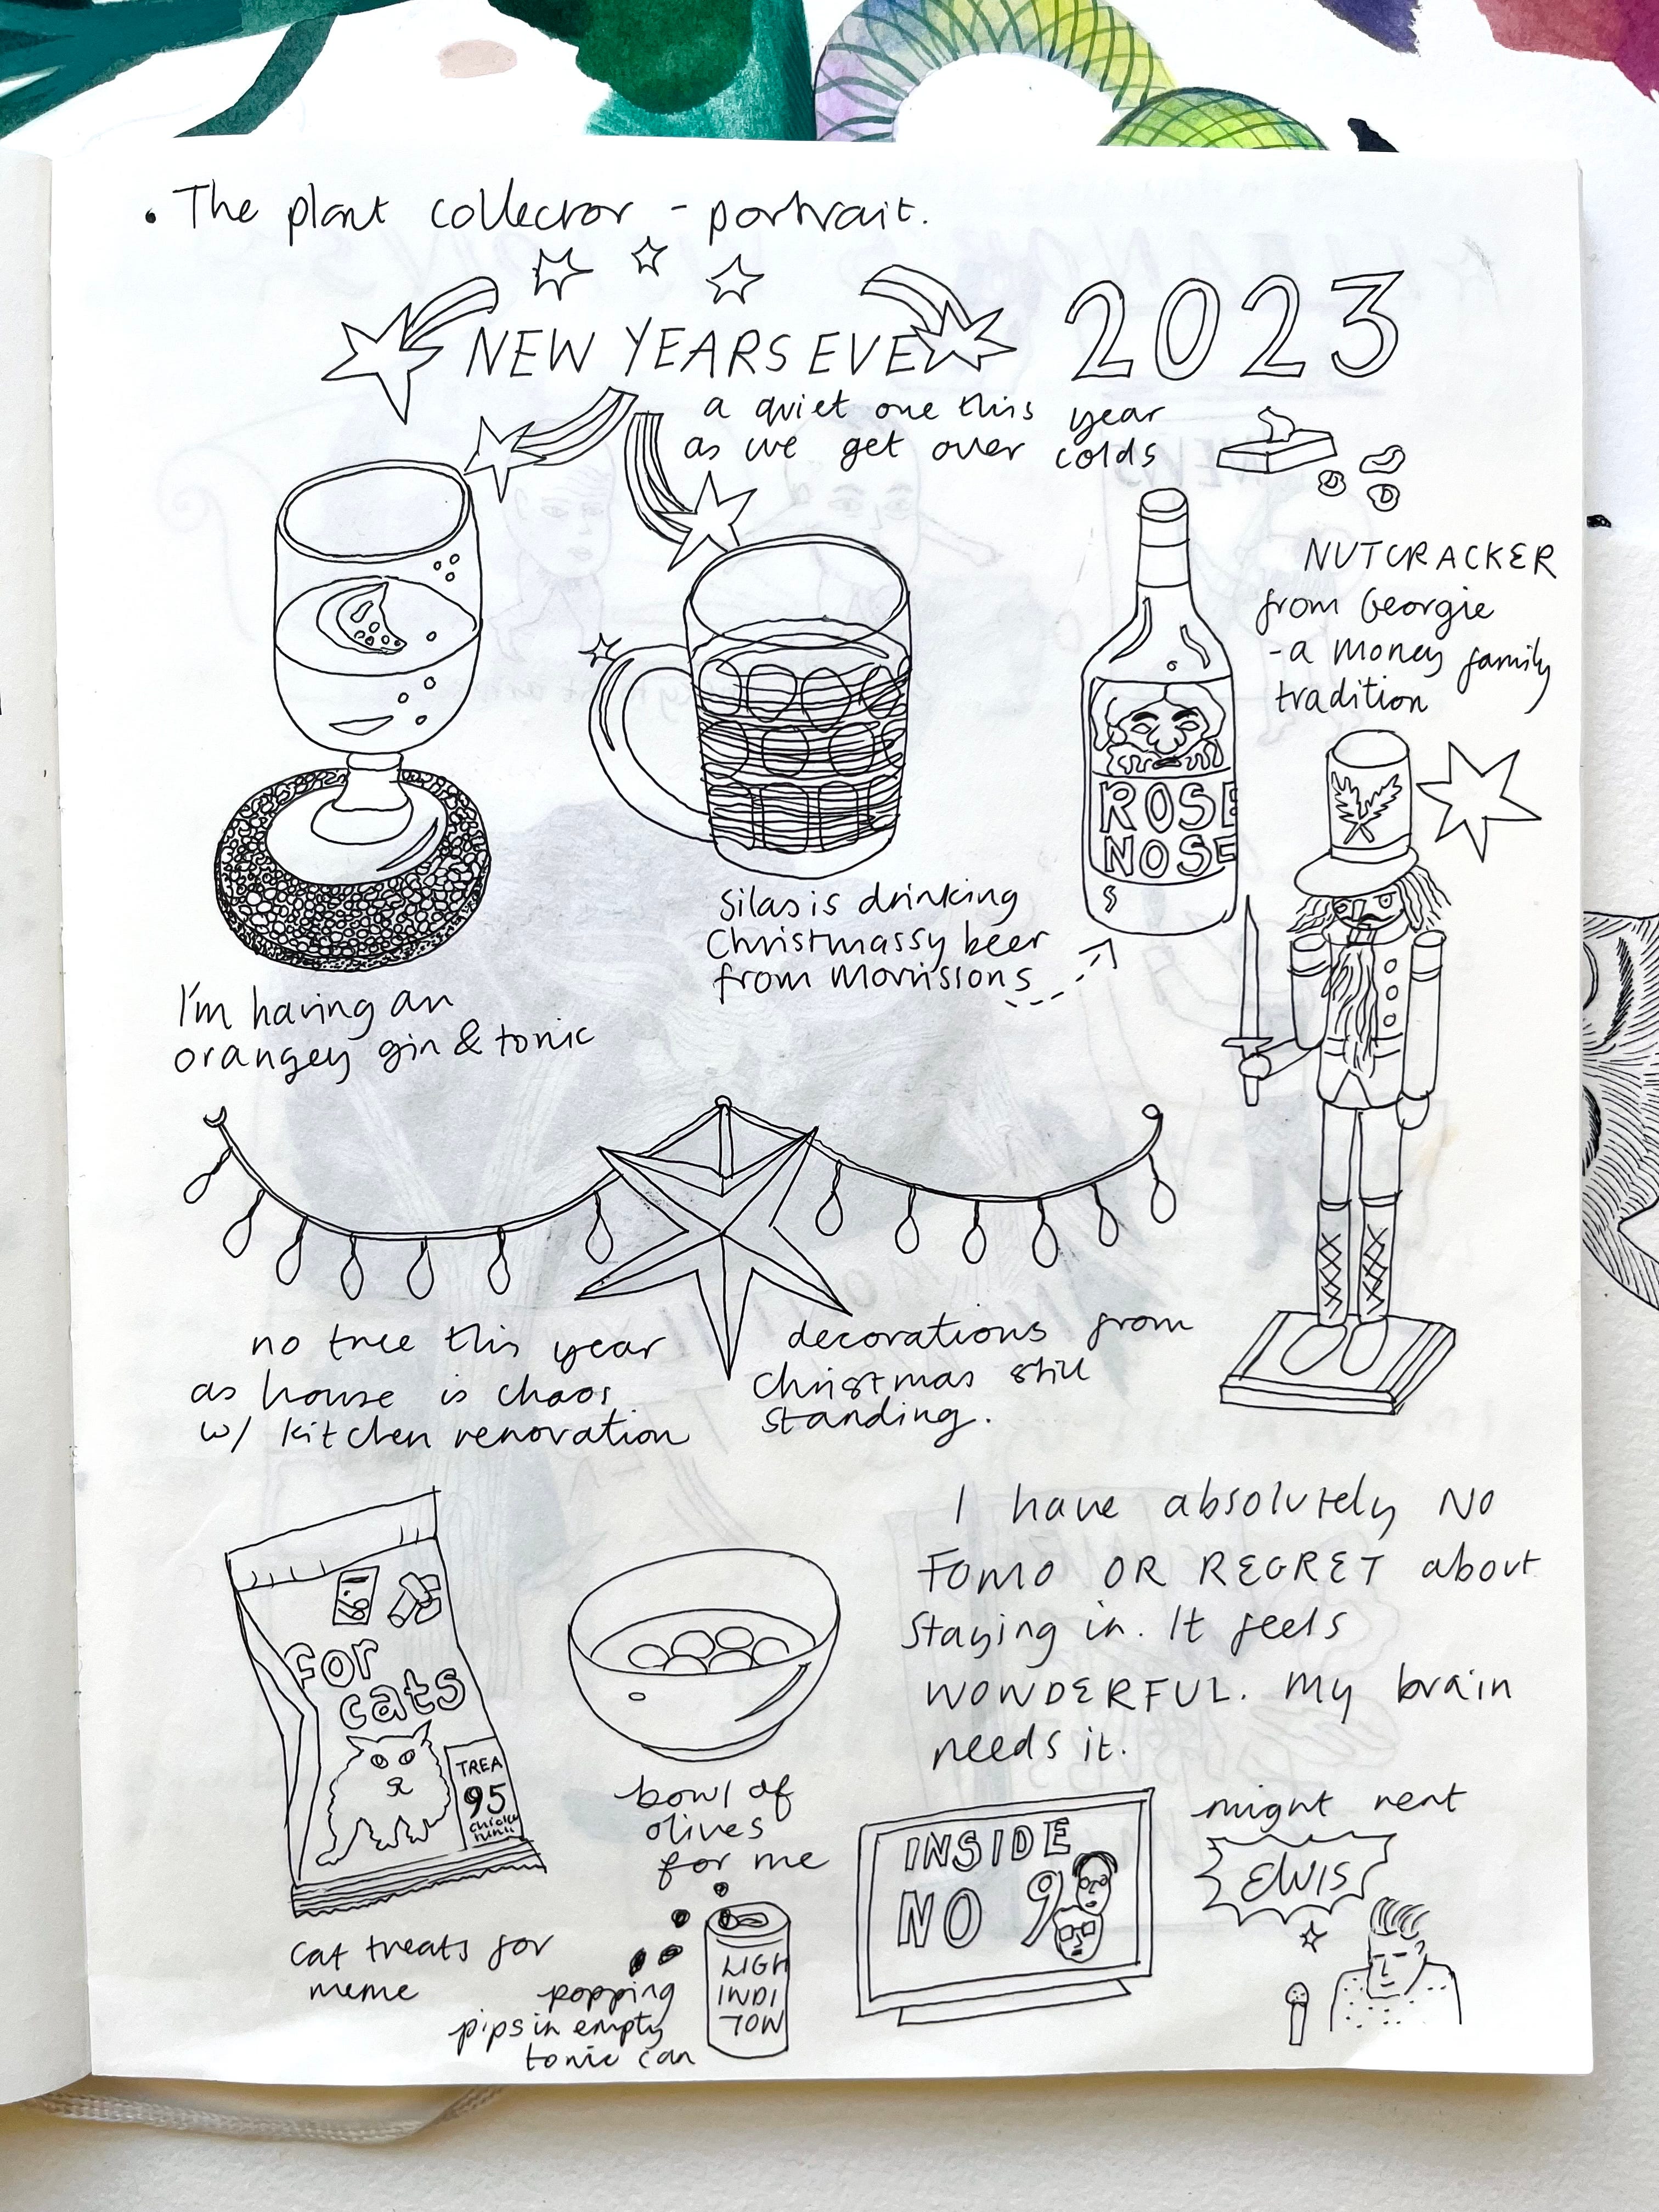 • The plant collector - portrait.
NEW YEARS EVE 2023
a quiet one this year
as we get over colds
NUTCRACKER
from Georgie
- a money family
tradition
ROSE
NOSE
Silas is drinking
Christmassy beer
from Morrissons
I'm having an
orangey gin & tonic
no tree this year
as house is chaos
w/ kitchen renovation
decorations from
Christmas still
standing.
I have absolutely NO
FOMO OR REGRET about
staying in. It feels
WONDERFUL. My brain
needs it.
for
cats
TREA
95
cat treats for
meme
bowl of
olives
for me
popping
pips in empty
tonic can
LIGH
INDI
TON
INSIDE
NO 9
might rent
ELVIS